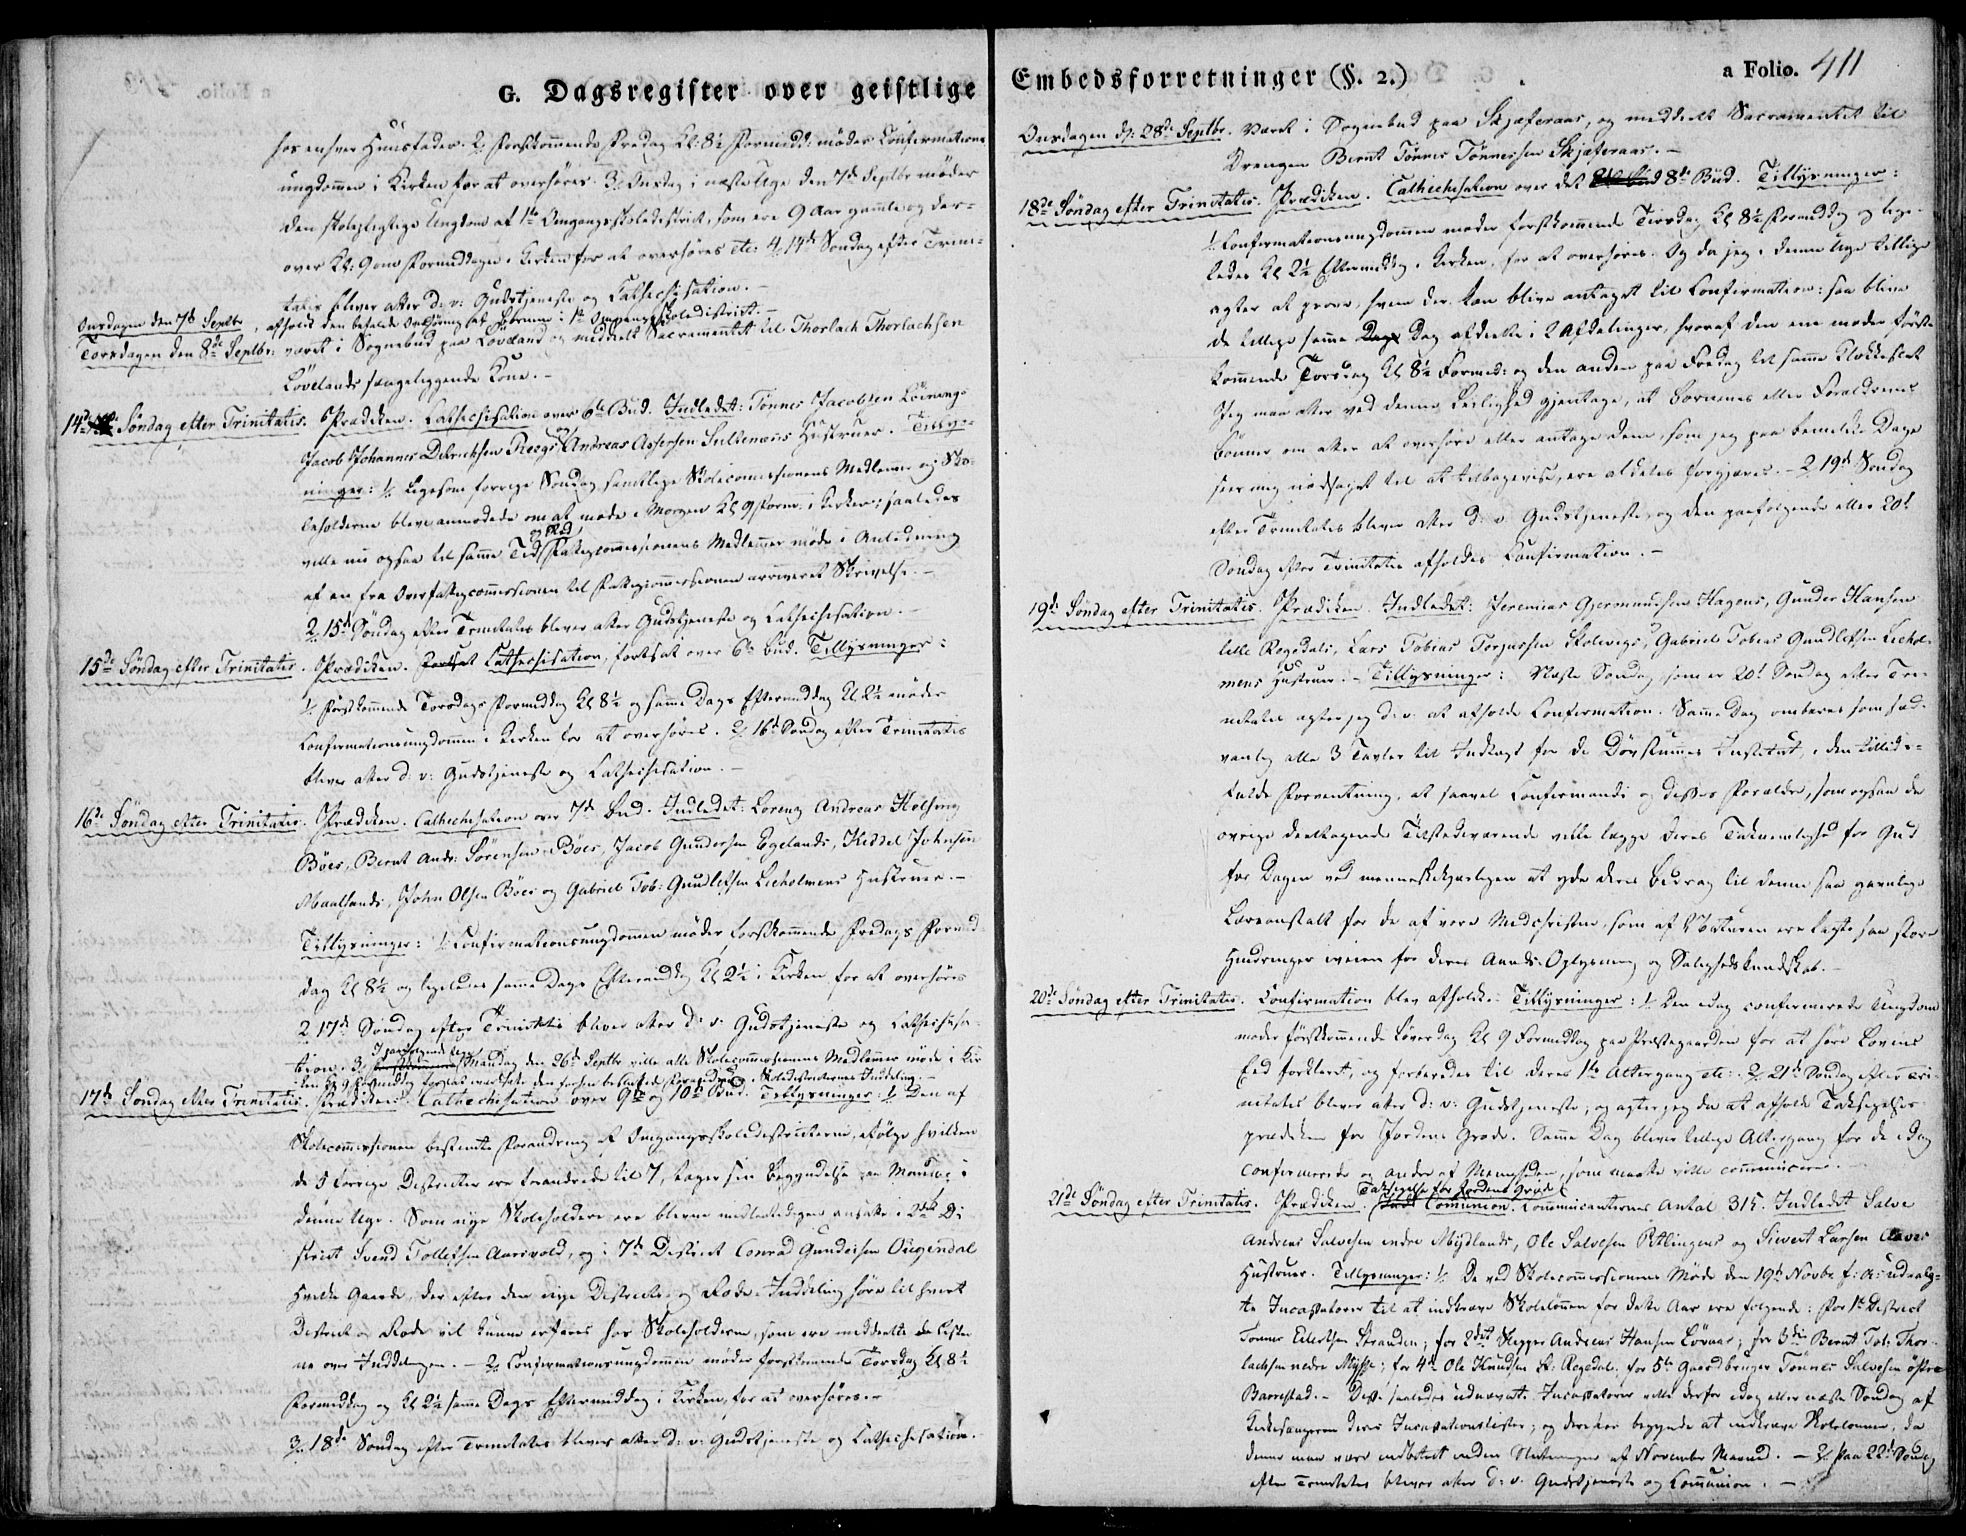 G. Dagsregister over geistlige
hos enhver Huusfader. 2/ Forstkommende Fredag Kl: 8½ Formidd: møder Confirmations
ungdommen i Kirken for at overhøres. 3/ Onsdag i næste Uge den 7de Septbr møder
den skolepligtige Ungdom af 1ste Omgangsskoledistrict, som ere 9 Aar gamle og der-
over Kl: 9 om Formiddagen i Kirken for at overhøres etc: 4/ 14de Søndag efter Trini-
tatis bliver atter d: v: Gudstjeneste og Cathechisation. –
Onsdagen den 7de Septbr, afholdt den befalede Overhøring af Børnene i 1ste Omgangsskoledistrict. –
Torsdagen den 8de Septbr: været i Sognebud paa Løvland og meddeelt Sacramentet til Thorlach Thorlachsen
Løvlands sængeliggende Kone. –
14de Søndag efter Trinitatis. Prædiken. Cathechisation over 6te Bud. Indledet: Tønnes Jacobsen
Jacob Johannes Hustruer. Tillys-
ninger: 1/ Ligesom forrige Søndag samtlige Skolecommissionens Medlemmer og Sko-
leholderne bleve anmodede om at møde i Morgen Kl 9 Form: i Kirken; saaledes
og Sted
ville nu ogsaa til samme Tid Fattigcommissionens Medlemmer møde i Anledning
af en fra Overfattigcommissionen til Fattigcommissionen arriveret Skrivelse. –
2/ 15de Søndag efter Trinitatis bliver atter Gudstjeneste og Cathechisation. –
15de Søndag efter Trinitatis. Prædiken. Cathechisation, fortsat over 6te Bud. Tillysninger:
1/ Førstkommende Torsdags Formiddag Kl 8½ og samme Dags Eftermiddag Kl 2½ møder
Confirmationsungdommen i Kirken for at overhøres. 2/ 16de Søndag efter Trinitatis
bliver atter d: v: Gudstjeneste og Cathechisation. –
16de Søndag efter Trinitatis. Prædiken. Cathechisation over 7de Bud. Indledet: Lorenz Andreas
Böes, Bernt Andr: Sørensen Böes, Jacob Gundersen Egelands, Kiddel Johnsen
John Olsen Böes og Gabriel Tob: Gundlefsen Leeholmens Hustruer. –
Tillysninger: 1/ Confirmationsungdommen møder førstkommende Fredags Formid-
dag Kl 8½ og ligeledes samme Dags Eftermiddag Kl 2½ i Kirken for at overhøres
2/ 17de Søndag efter Trinitatis bliver atter d: v: Gudstjeneste og Cathechisa-
tion. 3/ Mandag den 26de Septbr ville alle Skolecommissionens Medlemmer møde i Kir
ken Kl 9 Formiddag Skoledistricternes Inddeling. –
17de Søndag efter Trinitatis. Prædiken. Cathechisation over 9de og 10de Bud. Tillysninger: 1/ Den af
Skolecommissionen bestemte Forandring af Omgangsskoledistricterne, ifølge hvilken
de 5 forrige Districter ere forandrede til 7, tager sin Begyndelse paa Mandag i
denne Uge. Som nye Skoleholdere ere blevne ansatte i 2det Di-
strict Svend Tollefsen Aarsvold, og i 7de District Conrad Gundersen
Hvilke Gaarde, der efter den nye Districts og Rode-Inddeling høre til hvert
District og Rode vil kunne erfares hos Skoleholderne, som ere meddeelte Lister
ne over Inddelingen. – 2/ Confirmationsungdommen møder førstkommende Torsdag Kl 8½
Formiddag og Kl 2½ samme Dags Eftermiddag i Kirken, for at overhøres. –
3/ 18de Søndag efter Trinitatis bliver atter d: v: Gudstjeneste og Cathechisation. –
Embedsforretninger (§. 2.)
a Folio. 411
Onsdagen d: 28de Septbr. været i Sognebud paa Skjæferaas, og meddeelt Sacramentet til
Drengen Bernt Tönnes Tönnessen Skjæferaas. –
18de Søndag efter Trinitatis. Prædiken. Cathechisation over det 8de Bud. Tillysninger:
1/ Confirmationsungdommen møder førstkommende Tirsdag Kl 8½ Formiddag og lige-
ledes Kl 2½ Eftermiddag i Kirken, for at overhøres. Og da jeg i denne Uge tillige
agter at prøve, hvem der kan blive antaget til Confirmation: saa blive
de tillige samme Dag afdeelte i 2 Afdelinger, hvoraf den ene møder første
kommende Torsdag Kl 8½ Formid: og den anden paa Fredag til samme Klokkeslet
Jeg maa atter ved denne Leilighed gjentage, at Børnenes eller Forældrenes
Bønner om atter at overhøre eller antage dem, som jeg paa bemeldte Dage
seer mig nødsaget til at tilbagevise, ere aldeles forgjæves. – 2/ 19de Søndag
efter Trinitatis bliver atter d: v: Gudstjeneste, og den paafølgende eller 20de
Søndag efter Trinitatis afholdes Confirmation. –
19de Søndag efter Trinitatis. Prædiken. Indledet: Jeremias Gjermundsen Hagens, Gunder Hansen
lille Rogsdals, Lars Tobias Torjussen Gabriel Tobias Gundlefsen Leehol-
mens Hustruer. – Tillysninger: Næste Søndag, som er 20de Søndag efter Tri-
nitatis agter jeg d: v: at afholde Confirmation. Samme Dag ombæres som sæd-
vanlig alle 3 Tavler til Indtægt for de Døvstummes Institut, i den tillids-
fulde Forventning, at saavel Confirmandi og disses Forældre, som ogsaa de
øvrige deeltagende Tilstedeværende ville lægge deres Taknemlighed for Gud
for Dagen ved menneskekjærligen at yde deres Bidrag til denne saa gavnlige
Læreanstalt for de af vore Medchristne, som af Naturen ere lagte saa store
Hindringer iveien for deres Aands-Oplysning og Saligheds Kundskab. –
20de Søndag efter Trinitatis. Confirmation blev afholdt. Tillysninger: 1/ Den idag confirmerede Ungdom
møder førstkommende Løverdag Kl 9 Formiddag paa Præstegaarden for at høre Lovens
Eed forklaret, og forberedes til deres 1ste Altergang etc. 2/ 21de Søndag efter Tri-
nitatis bliver atter d: v: Gudstjeneste, og agter jeg da at afholde Taksigelses-
prædiken for Jordens Grøde. Samme Dag bliver tillige Altergang for de idag
confirmerede og andre af Menigheden, som maatte ville communicere. –
21de Søndag efter Trinitatis. Prædiken. Taksigelse for Jordens Grøde
Communion. Communicanternes Antal 315. Indledet Salve
Andreas Salvesen nedre Mydlands, Ole Salvesen og Siwert Larsen
Hustruer. Tillysninger: 1/ De ved Skolecommissionens Møde den 19de Novbr f: A: udvalg-
te Incassatorer til at indkræve Skolelønnen for dette Aar ere følgende: For 1ste District
Tønnes Eilertsen Stranden; for 2det Skipper Andreas Hansen Løvaas; for 3die Bernt Tob: Thor-
lachsen nedre for 4de Ole Knudsen St: Rogsdal, for 5te Gaardbruger Tönnes Salvesen østre
Barrestad. – Disse saaledes udnævnte Incassatorer ville derfor idag eller næste Søndag af
Kirkesangeren deres Incassationslister; og derefter begynde at indkræve Skolelønnen, da
denne maa være indbetalt inden Slutningen af November Maaned. – 2/ Paa 22de Søndag
efter Trinitatis bliver atter d: v: Gudstjeneste og Communion. –